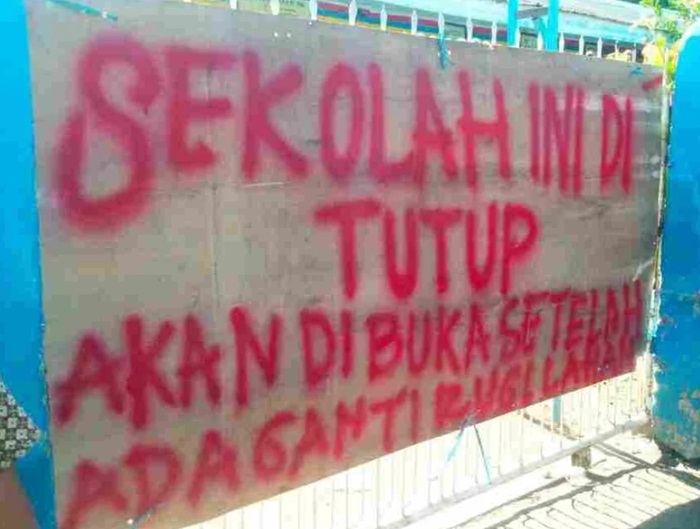 SEKOLAH INI DI
TUTUP
AKAN DI BUKA SETELAH
ADA GANTI RUGI LAHAN